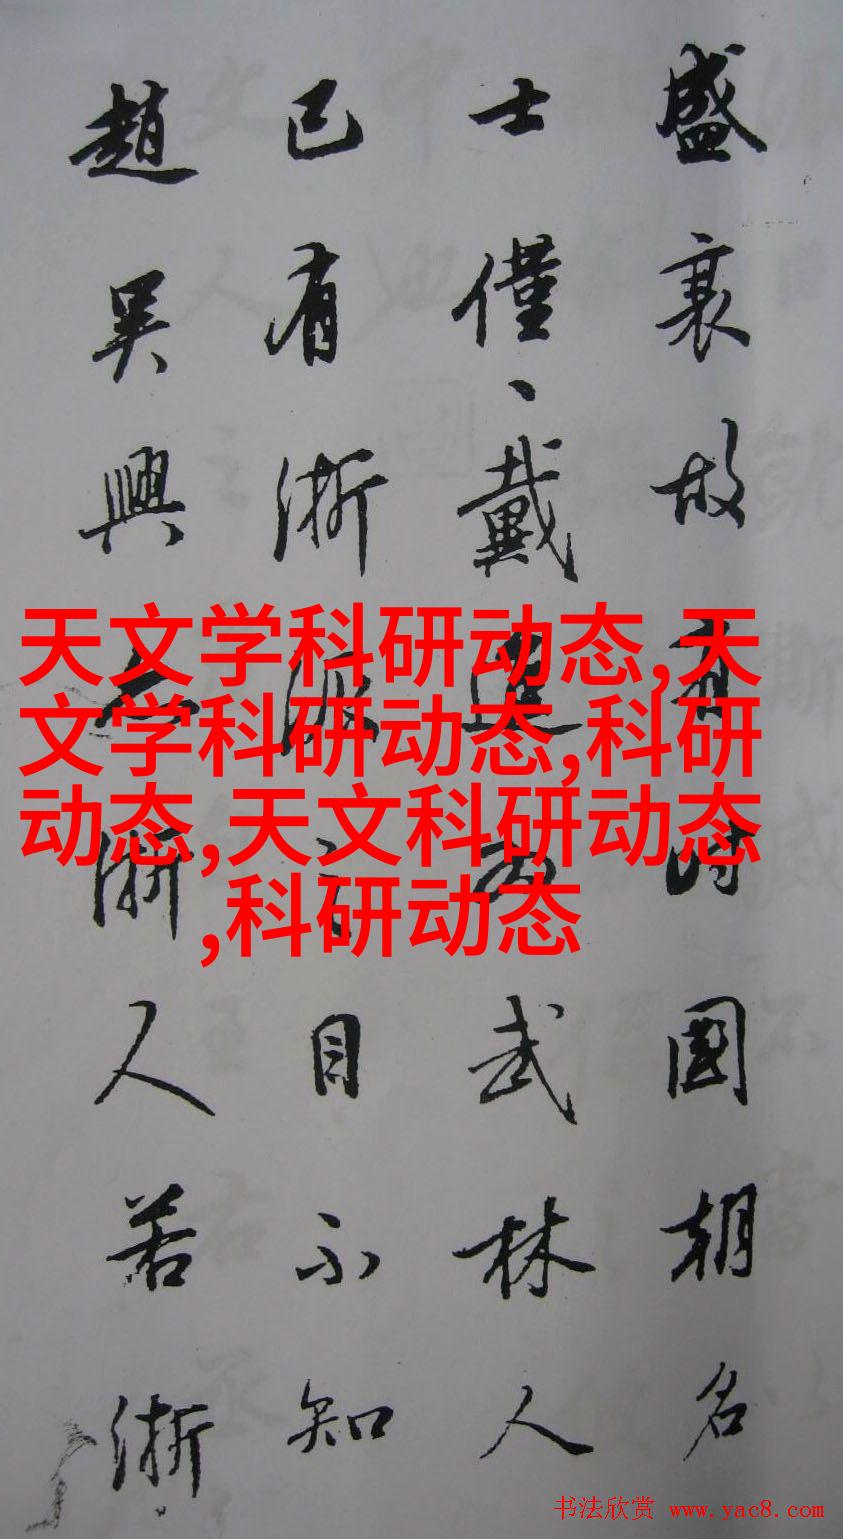 盛衰故亦時國朝名
士僅、戴進為武林人
已有浙派之目不知
趙吳興亦浙人若浙
天文学科研动态,天
文学科研动态,科研
动态,天文科研动态
,科研动态
书法欣赏 www.yac8.com